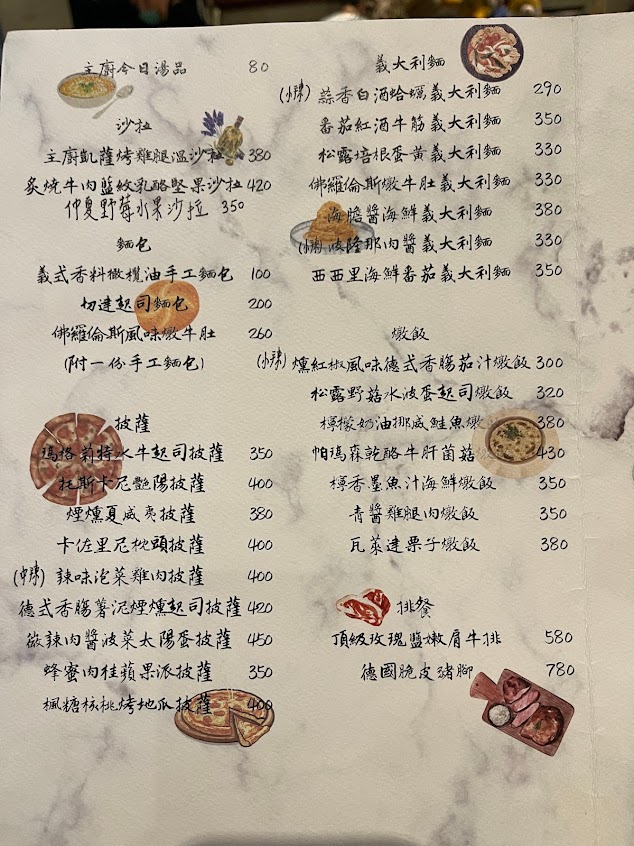 主廚今日湯品 80
沙拉
主廚凱薩烤雞腿溫沙拉 380
炙燒牛肉藍紋乳酪堅果沙拉 420
仲夏野莓水果沙拉 350
麵包
義式香料橄欖油手工麵包 100
切達起司麵包 200
佛羅倫斯風味燉牛肚 260
(附一份手工麵包)
披薩
瑪格莉特水牛起司披薩 350
托斯卡尼艷陽披薩 400
煙燻夏威夷披薩 380
卡佐里尼枕頭披薩 400
(中辣) 辣味泡菜雞肉披薩 400
德式香腸薯泥煙燻起司披薩 420
微辣肉醬菠菜太陽蛋披薩 450
蜂蜜肉桂蘋果派披薩 350
楓糖核桃烤地瓜披薩 400
義大利麵
(小辣) 蒜香白酒蛤蠣義大利麵 290
番茄紅酒牛筋義大利麵 350
松露培根蛋黃義大利麵 330
佛羅倫斯燉牛肚義大利麵 330
海膽醬海鮮義大利麵 380
(小辣) 波隆那肉醬義大利麵 330
西西里海鮮番茄義大利麵 350
燉飯
(小辣) 燻紅椒風味德式香腸茄汁燉飯 300
松露野菇水波蛋起司燉飯 320
檸檬奶油挪威鮭魚燉 380
帕瑪森乾酪牛肝菌菇 430
檸香墨魚汁海鮮燉飯 350
青醬雞腿肉燉飯 350
瓦萊達栗子燉飯 380
排餐
頂級玫瑰鹽嫩肩牛排 580
德國脆皮豬腳 780